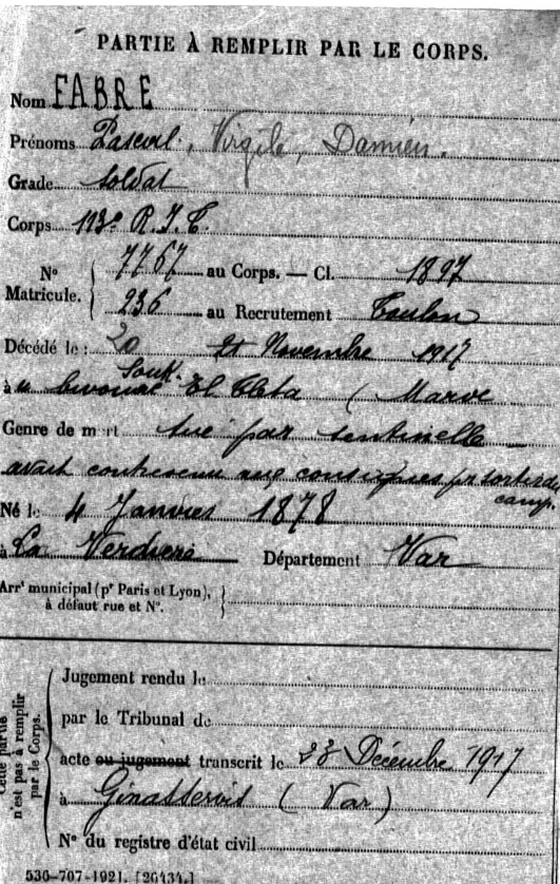 PARTIE À REMPLIR PAR LE CORPS.
Nom FABRE
Prénoms Pascal, Virgile, Damien.
Grade soldat
Corps 113e R.I.T.
7767 au Corps. — Cl. 1897
N° Matricule.
236 au Recrutement Toulon
Décédé le : 20 21 Novembre 1917
Souk-
à u bivouac El Tleta ( Maroc
Genre de mort tué par sentinelle
avait contrevenu aux consignes pr sortir du
camp.
Né le 4 Janvier 1878
à La Verdière Département Var
Arrt municipal (pr Paris et Lyon),
à défaut rue et N°.
Cette partie n'est pas à remplir par le Corps.
Jugement rendu le
par le Tribunal de
acte ou jugement transcrit le 23 Décembre 1917
à Ginasservis ( Var )
N° du registre d'état civil
536-707-1921. [26434.]